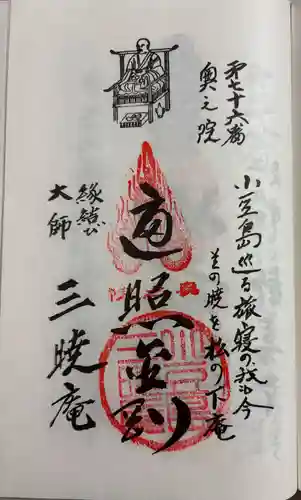 第七十六番
奥之院
小豆島巡る旅寝の我は今
その暁を松の下庵
遍照金剛
縁結び
大師
三暁庵